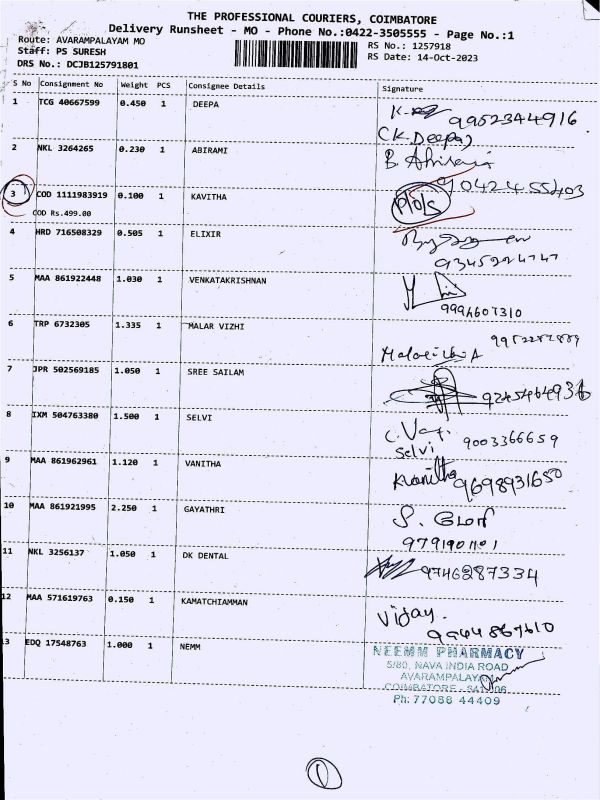 THE PROFESSIONAL COURIERS, COIMBATORE
Delivery Runsheet - MO - Phone No.:0422-3505555 - Page No.:1
Route: AVARAMPALAYAM MO
RS No.: 1257918
Staff: PS SURESH
RS Date: 14-Oct-2023
DRS No.: DCJB125791801
S No Consignment No Weight PCS Consignee Details Signature
1 TCG 40667599 0.450 1 DEEPA
9952344916
CK. Deepa
2 NKL 3264265 0.230 1 ABIRAMI
B. Abirami
9042455403
3 COD 1111983919 0.100 1 KAVITHA
COD Rs.499.00
4 HRD 716508329 0.505 1 ELIXIR
5 MAA 861922448 1.030 1 VENKATAKRISHNAN
9994607310
6 TRP 6732305 1.335 1 MALAR VIZHI
7 JPR 502569185 1.050 1 SREE SAILAM
8 IXM 504763380 1.500 1 SELVI
Selvi 9003366659
9 MAA 861962961 1.120 1 VANITHA
9698931650
10 MAA 861921995 2.250 1 GAYATHRI
9791901101
11 NKL 3256137 1.050 1 DK DENTAL
9746287334
12 MAA 571619763 0.150 1 KAMATCHIAMMAN
Vijay.
9944867610
13 EDQ 17548763 1.000 1 NEMM
NEEMM PHARMACY
5/80, NAVA INDIA ROAD
AVARAMPALAYAM
COIMBATORE - 641 006
Ph: 77088 44409
1